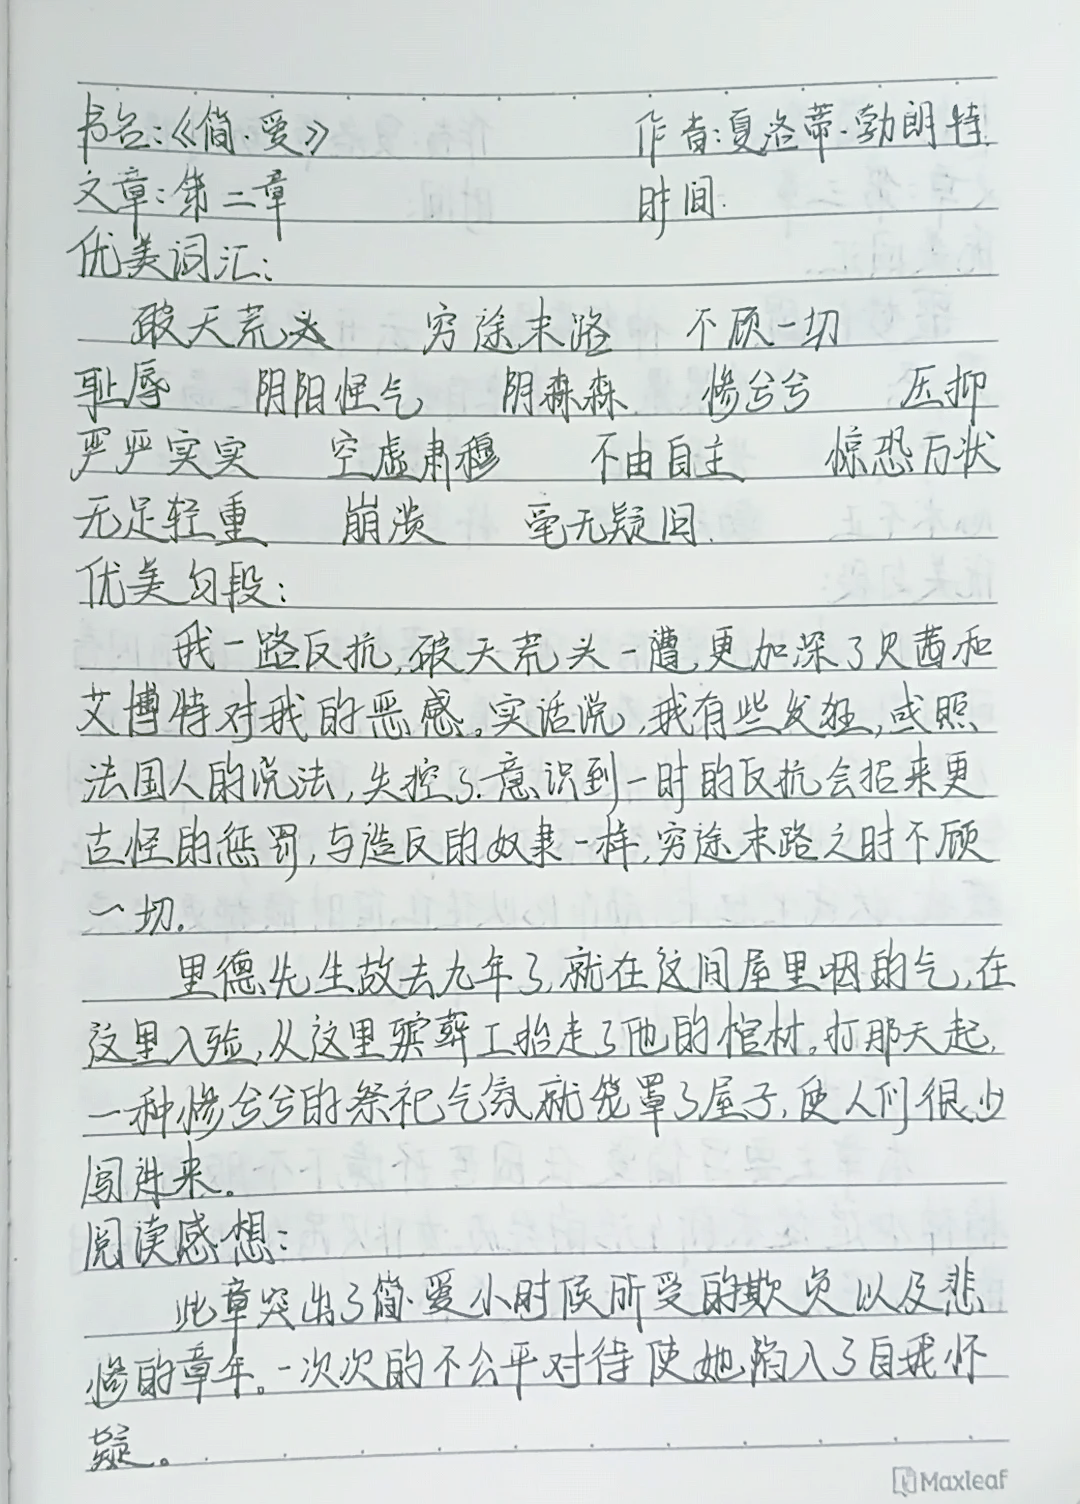 书名：《简·爱》 作者：夏洛蒂·勃朗特.
文章：第二章 时间.
优美词汇：
破天荒头 穷途末路 不顾一切
耻辱 阴阳怪气 阴森森 惨兮兮 压抑
严严实实 空虚肃穆 不由自主 惊恐万状
无足轻重 崩溃 毫无疑旧.
优美句段：
我一路反抗,破天荒头一遭,更加深了贝茜和
艾博特对我的恶感。实话说，我有些发狂,或照
法国人的说法,失控了.意识到一时的反抗会招来更
古怪的惩罚,与造反的奴隶一样,穷途末路之时不顾
一切.
里德先生故去九年了,就在这间屋里咽的气,在
这里入殓,从这里殡葬工抬走了他的棺材。打那天起,
一种惨兮兮的祭祀气氛就笼罩了屋子,使人们很少
闯进来。
阅读感想：
此章突出了简·爱小时候所受的欺负以及悲
惨的章年。一次次的不公平对待使她陷入了自我怀
疑。
Maxleaf